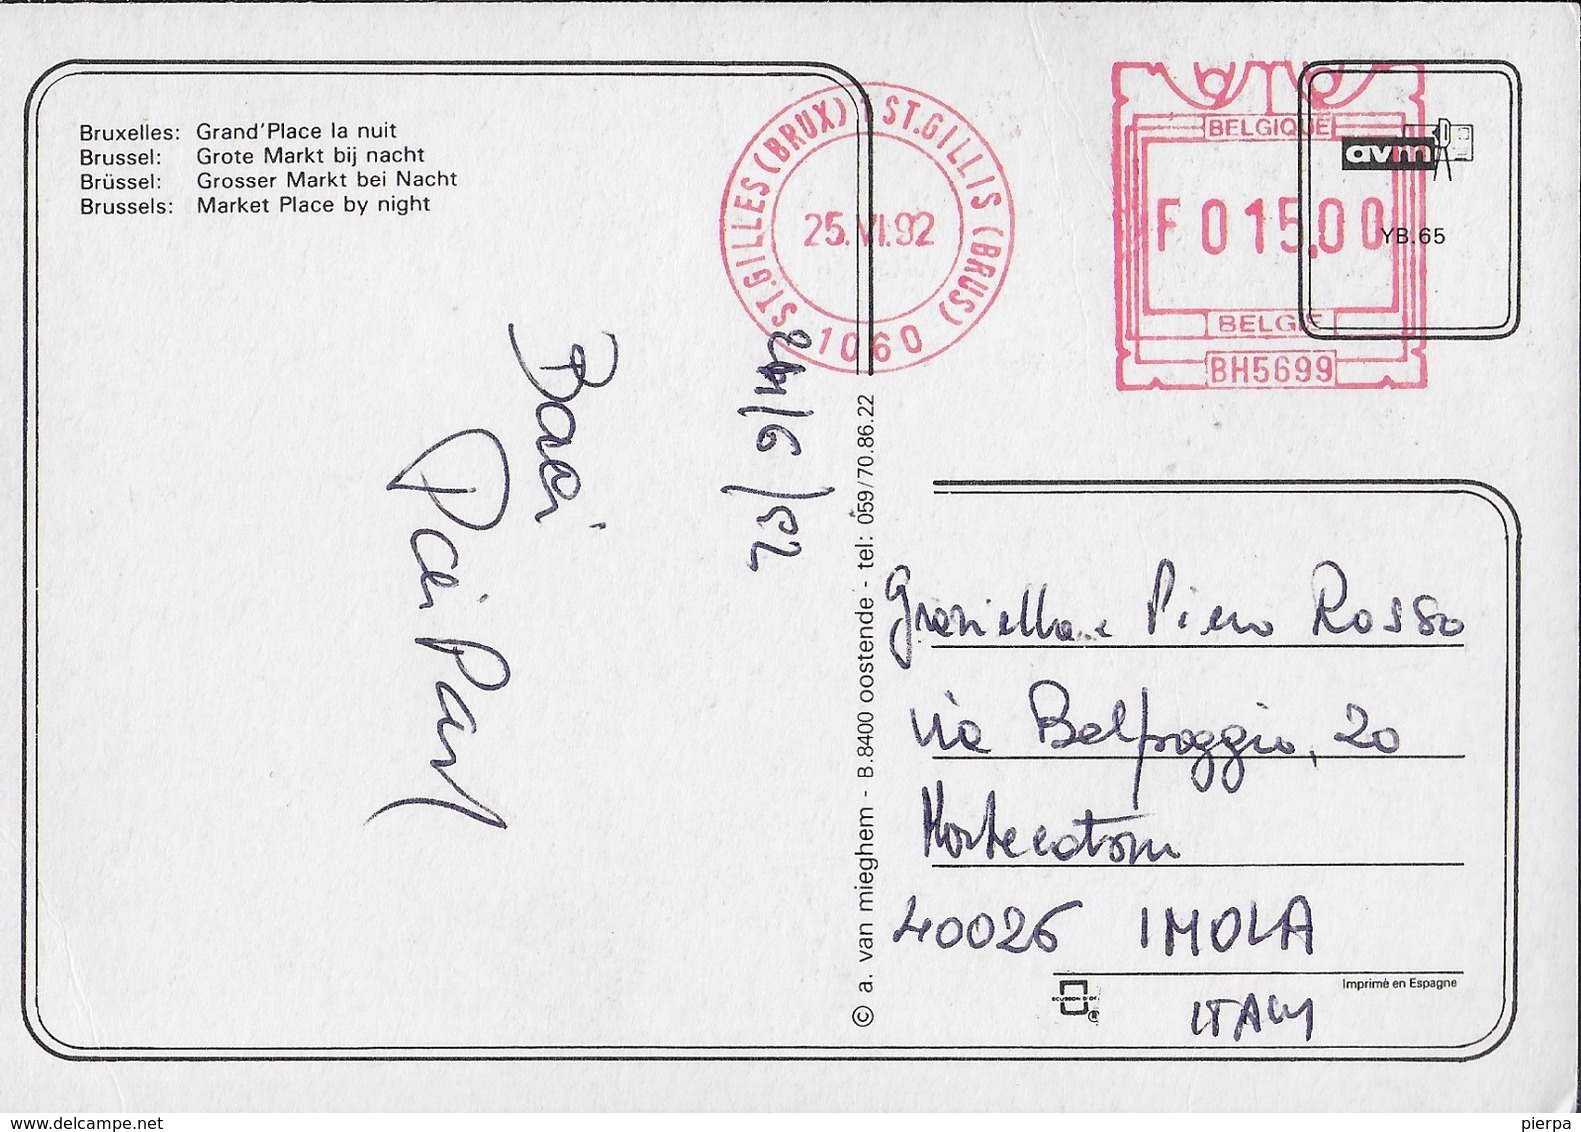 Bruxelles: Grand'Place la nuit
Brussel: Grote Markt bij nacht
Brüssel: Grosser Markt bei Nacht
Brussels: Market Place by night
ST.GILLES (BRUX) 1 ST.GILLIS (BRUS)
25.VI.92
1060
BELGIQUE
F 015,00
BELGIE
BH5699
avm
YB.65
/6/92
Baci
© a. van mieghem - B.8400 oostende - tel: 059/70.86.22
Graziella e Piero Rosso
Via Belpoggio, 20
40026 IMOLA
ITALY
ECUSSON D'OR
®
Imprimé en Espagne
www.delcampe.net
pierpa